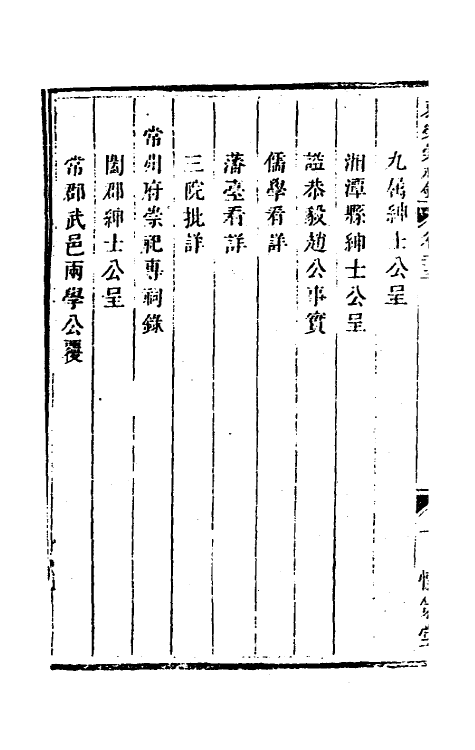 九屬紳士公呈
湘潭縣紳士公呈
諡恭毅趙公事實
儒學看詳
藩臺看詳
三院批詳
常州府崇祀專祠錄
闔郡紳士公呈
常郡武邑兩學公覆